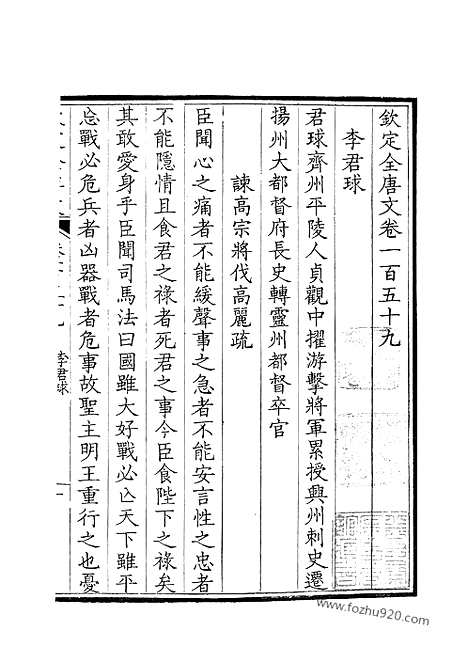 欽定全唐文卷一百五十九
李君球
君球齊州平陵人貞觀中擢游擊將軍累授興州刺史遷
揚州大都督府長史轉靈州都督卒官
諫高宗將伐高麗疏
臣聞心之痛者不能緩聲事之急者不能安言性之忠者
不能隱情且食君之祿者死君之事今臣食陛下之祿矣
其敢愛身乎臣聞司馬法曰國雖大好戰必亾天下雖平
忘戰必危兵者凶器戰者危事故聖主明王重行之也憂
李君球
一
www.fozhu920.com